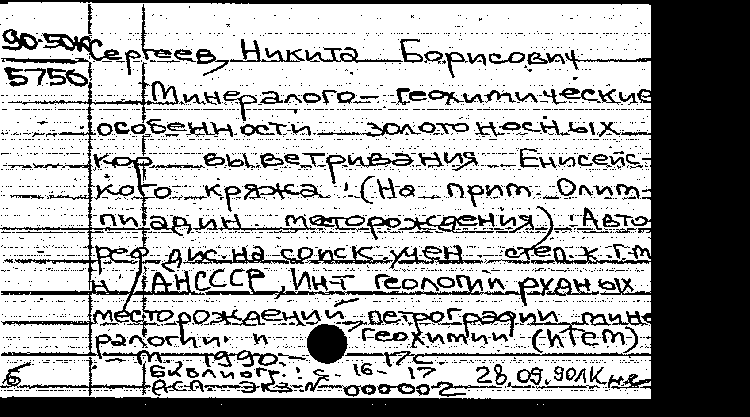 90-50К Сергеев, Никита Борисович
5750
Минералого-геохимические
особенности золотоносных
кор выветривания Енисейс-
кого кряжа: (На прим. Олим-
пиадин месторождения): Авто-
реф. дис. на соиск. учен. степ. к. г.-м.
н. АН СССР, Ин-т геологии рудных
месторождений, петрографии, мине-
ралогии и геохимии (ИГЕМ)
- М., 1990. - 17 с.
Библиогр.: с. 16-17
Б ДСП. Экз. N 000002 28.09.90